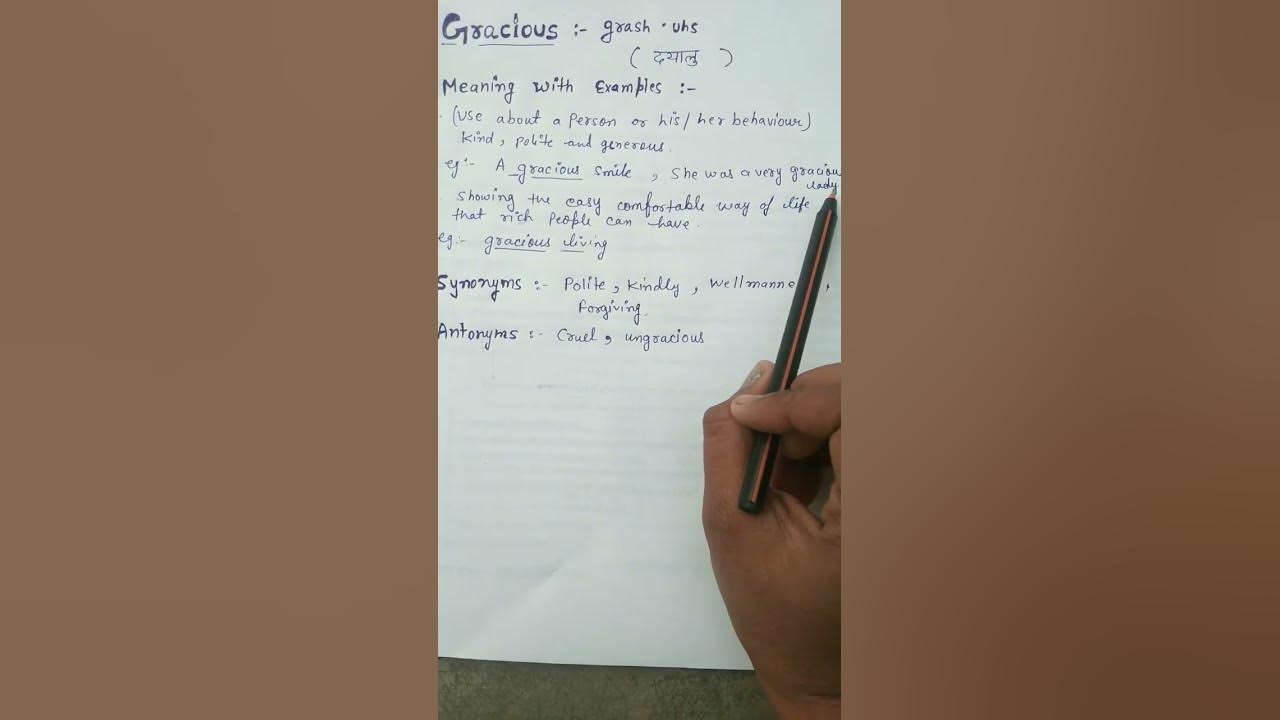 Gracious :- grash · uhs
( दयालु )
Meaning with Examples :-
· (Use about a person or his/her behaviour)
kind, polite and generous.
eg:- A gracious smile , She was a very graciou
lady
· Showing the easy comfortable way of life
that rich people can have.
eg:- gracious living
Synonyms :- Polite, kindly, wellmanne ,
forgiving.
Antonyms :- Cruel, ungracious